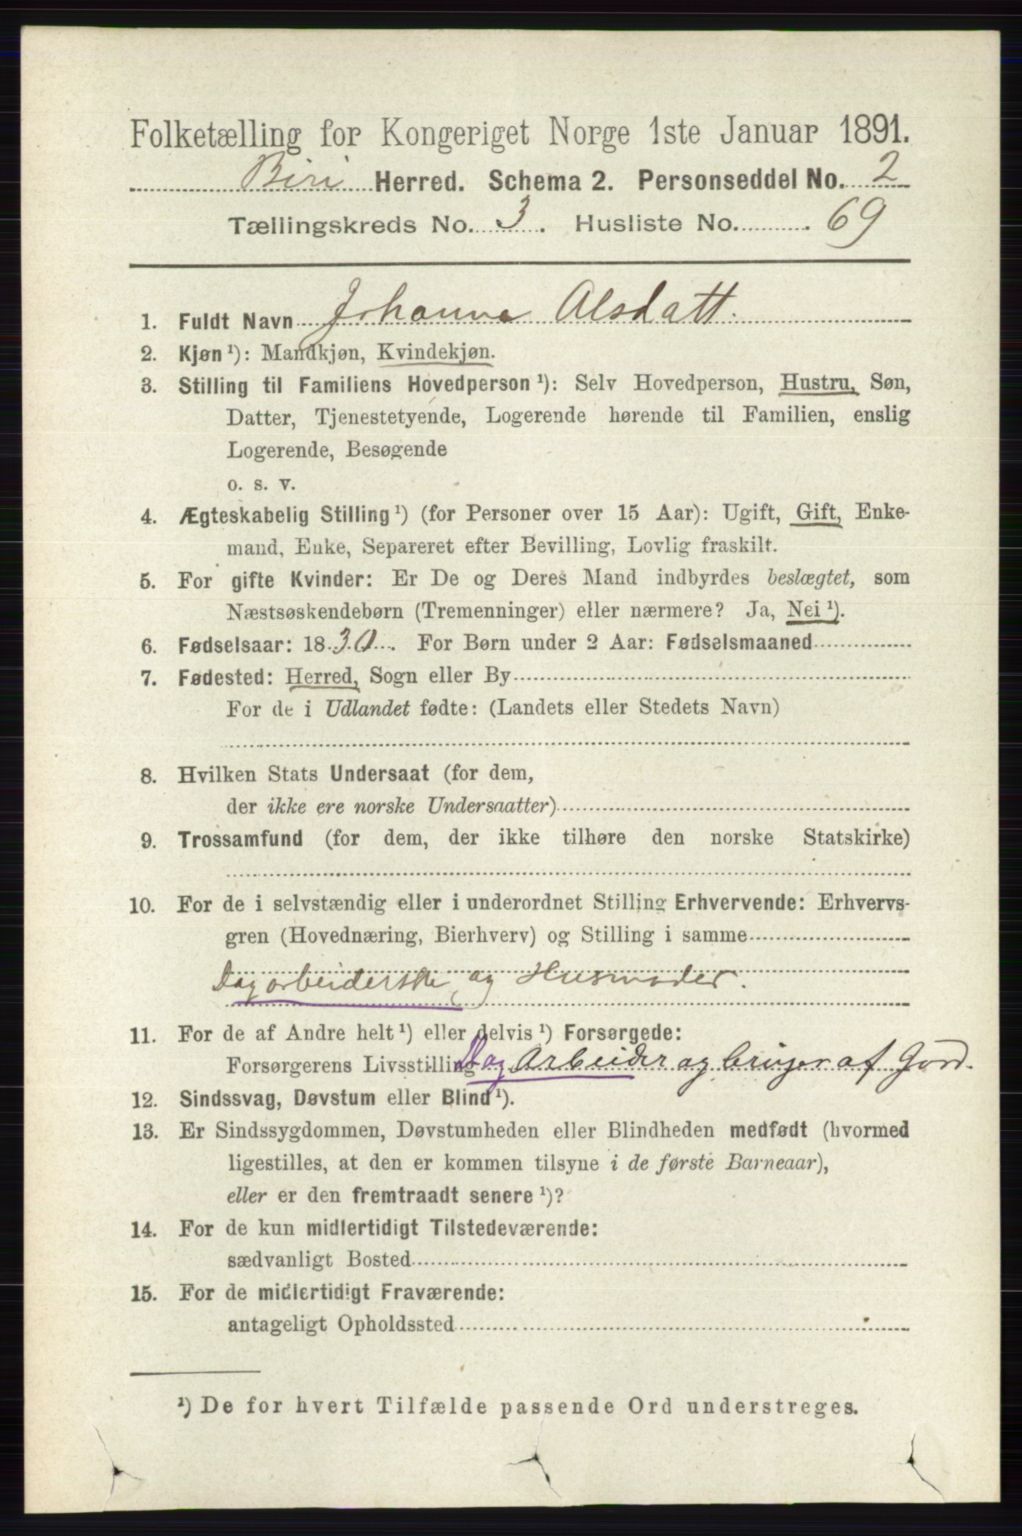 Folketælling for Kongeriget Norge 1ste Januar 1891.
Biri Herred. Schema 2. Personseddel No. 2
Tællingskreds No. 3. Husliste No. 69
1. Fuldt Navn Johanne Olsdatt.
2. Kjøn ¹): Mandkjøn, Kvindekjøn.
3. Stilling til Familiens Hovedperson ¹): Selv Hovedperson, Hustru, Søn,
Datter, Tjenestetyende, Logerende hørende til Familien, enslig
Logerende, Besøgende
o. s. v.
4. Ægteskabelig Stilling ¹) (for Personer over 15 Aar): Ugift, Gift, Enke-
mand, Enke, Separeret efter Bevilling, Lovlig fraskilt.
5. For gifte Kvinder: Er De og Deres Mand indbyrdes beslægtet, som
Næstsøskendebørn (Tremenninger) eller nærmere? Ja, Nei ¹).
6. Fødselsaar: 1830. For Børn under 2 Aar: Fødselsmaaned
7. Fødested: Herred, Sogn eller By
For de i Udlandet fødte: (Landets eller Stedets Navn)
8. Hvilken Stats Undersaat (for dem,
der ikke ere norske Undersaatter)
9. Trossamfund (for dem, der ikke tilhøre den norske Statskirke)
10. For de i selvstændig eller i underordnet Stilling Erhvervende: Erhvervs-
gren (Hovednæring, Bierhverv) og Stilling i samme
Dagarbeiderske og Husmoder.
11. For de af Andre helt ¹) eller delvis ¹) Forsørgede:
Forsørgerens Livsstilling Dag Arbeider og bruger af Jord.
12. Sindssvag, Døvstum eller Blind ¹).
13. Er Sindssygdommen, Døvstumheden eller Blindheden medfødt (hvormed
ligestilles, at den er kommen tilsyne i de første Barneaar),
eller er den fremtraadt senere ¹)?
14. For de kun midlertidigt Tilstedeværende:
sædvanligt Bosted
15. For de midlertidigt Fraværende:
antageligt Opholdssted
¹) De for hvert Tilfælde passende Ord understreges.